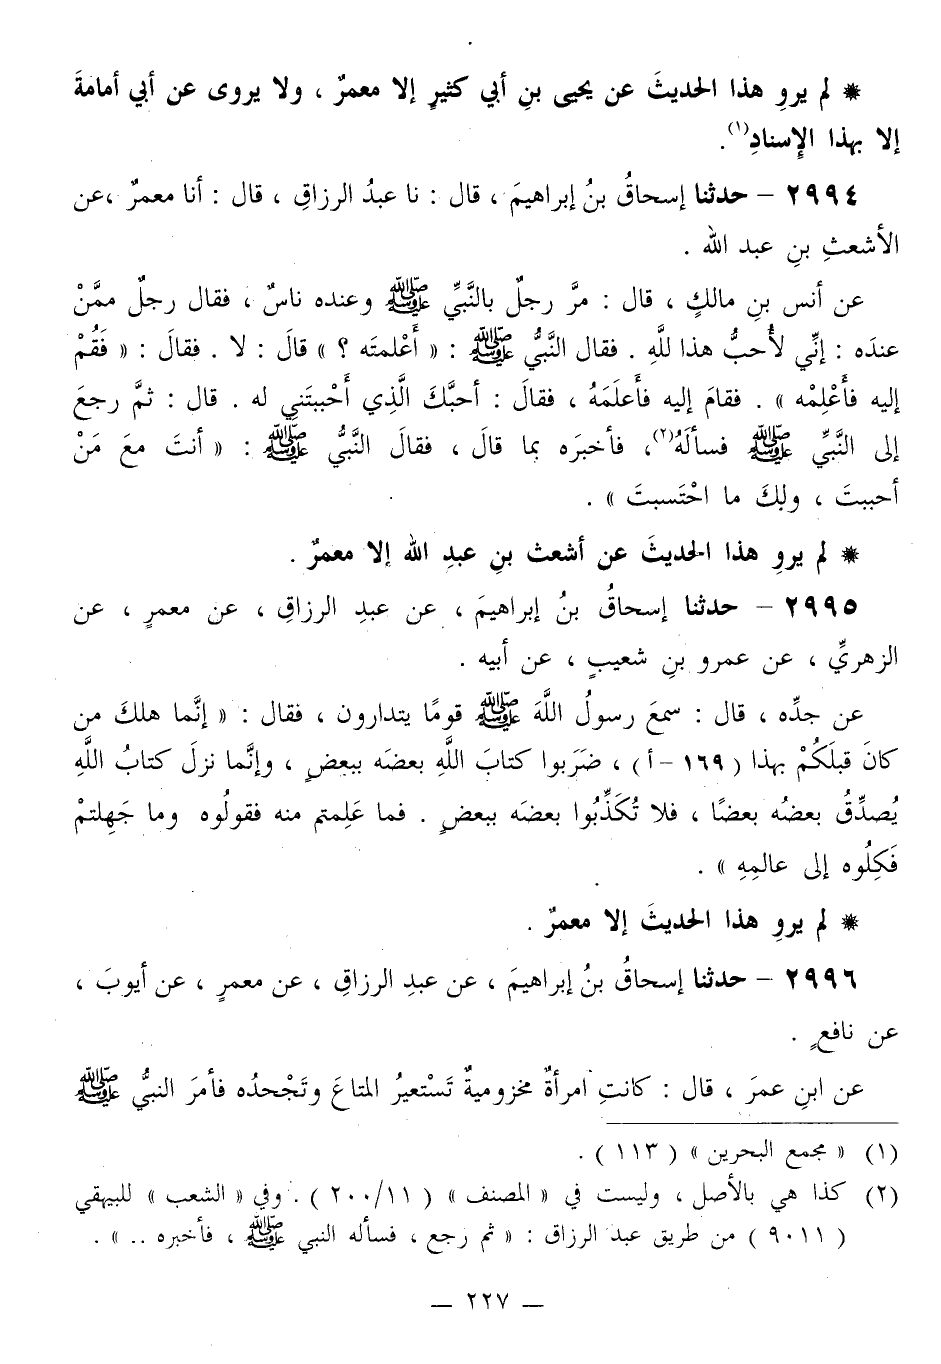 * لم يروِ هذا الحديثَ عن يحيى بنِ أبي كثيرٍ إلا معمرٌ ، ولا يروى عن أبي أمامةَ
إلا بهذا الإسنادِ(١).
٢٩٩٤ – حدثنا إسحاقُ بنُ إبراهيمَ ، قال : نا عبدُ الرزاقِ ، قال : أنا معمرٌ ،عن
الأشعثِ بنِ عبد الله .
عن أنس بنِ مالكٍ ، قال : مرَّ رجلٌ بالنَّبيِّ ﷺ وعنده ناسٌ ، فقال رجلٌ ممَّنْ
عندَه : إنِّي لأُحبُّ هذا للَّهِ . فقال النَّبيُّ ﷺ : « أَعْلمتَه ؟ » قالَ : لا . فقالَ : « فَقُمْ
إليه فأَعْلِمْه » . فقامَ إليه فأَعلَمَهُ ، فقالَ : أحبَّكَ الَّذِي أَحْببتَني له . قال : ثمَّ رجعَ
إلى النَّبيِّ ﷺ فسألَهُ(٢)، فأخبرَه بما قالَ ، فقالَ النَّبيُّ ﷺ : « أنتَ معَ مَنْ
أحببتَ ، ولكَ ما احْتَسبتَ » .
* لم يروِ هذا الحديثَ عن أشعث بنِ عبدِ الله إلا معمرٌ .
٢٩٩٥ – حدثنا إسحاقُ بنُ إبراهيمَ ، عن عبدِ الرزاقِ ، عن معمرٍ ، عن
الزهريِّ ، عن عمرو بنِ شعيبٍ ، عن أبيه .
عن جدِّه ، قال : سمعَ رسولُ اللَّهَ ﷺ قومًا يتدارون ، فقال : « إنَّما هلكَ من
كانَ قبلَكُمْ بهذا ( ١٦٩ – أ ) ، ضَرَبوا كتابَ اللَّهِ بعضَه ببعضٍ ، وإنَّما نزلَ كتابُ اللَّهِ
يُصدِّقُ بعضُه بعضًا ، فلا تُكَذِّبُوا بعضَه ببعضٍ . فما عَلِمتم منه فقولُوه وما جَهِلتمْ
فَكِلُوه إلى عالمِهِ » .
* لم يروِ هذا الحديثَ إلا معمرٌ .
٢٩٩٦ – حدثنا إسحاقُ بنُ إبراهيمَ ، عن عبدِ الرزاقِ ، عن معمرٍ ، عن أيوبَ ،
عن نافعٍ .
عن ابنِ عمرَ ، قال : كانتِ امرأةٌ مخزوميةٌ تَسْتعيرُ المتاعَ وتَجْحدُه فأمرَ النبيُّ ﷺ
(١) « مجمع البحرين » ( ١١٣ ) .
(٢) كذا هي بالأصل ، وليست في « المصنف » ( ٢٠٠/١١ ) . وفي « الشعب » للبيهقي
( ٩٠١١ ) من طريق عبد الرزاق : « ثم رجع ، فسأله النبي ﷺ ، فأخبره .. » .
— ٢٢٧ —